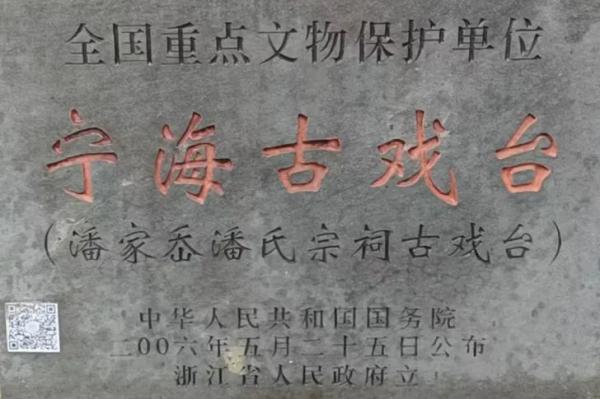 全国重点文物保护单位
宁海古戏台
（潘家岙潘氏宗祠古戏台）
中华人民共和国国务院
二〇〇六年五月二十五日公布
浙江省人民政府立